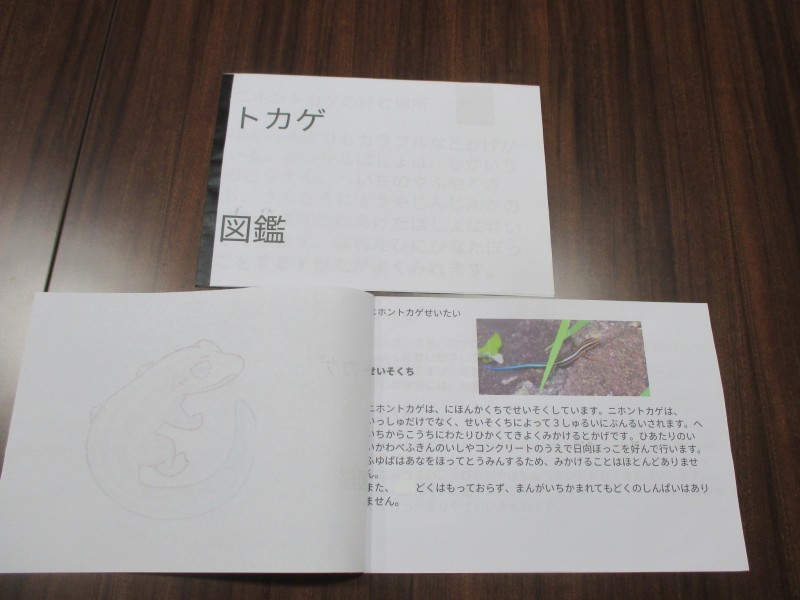 トカゲ
図鑑
ニホントカゲせいたい
せいそくち
ニホントカゲは、にほんかくちでせいそくしています。ニホントカゲは、
いっしゅだけでなく、せいそくちによって３しゅるいにぶんるいされます。へ
いちからこうちにわたりひかくてきよくみかけるとかげです。ひあたりのい
いかわべふきんのいしやコンクリートのうえで日向ぼっこを好んで行います。
ふゆばはあなをほってとうみんするため、みかけることはほとんどありませ
ん。
また、 どくはもっておらず、まんがいちかまれてもどくのしんぱいはあり
ません。